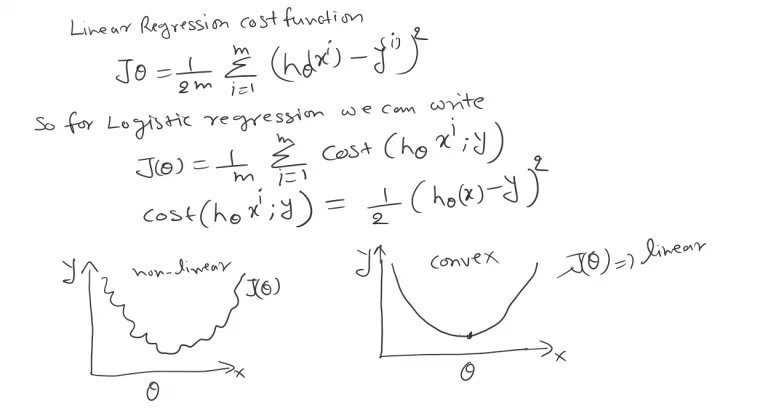 Linear Regression cost function
Jθ = 1/2m Σ_{i=1}^{m} (hθ(x^i) - y^{i)})^2
So for Logistic regression we can write
J(θ) = 1/m Σ_{i=1}^{m} cost (hθ x^i ; y)
cost (hθ x^i ; y) = 1/2 (hθ(x) - y)^2
y non-linear J(θ)
x
θ
y convex J(θ) => linear
x
θ